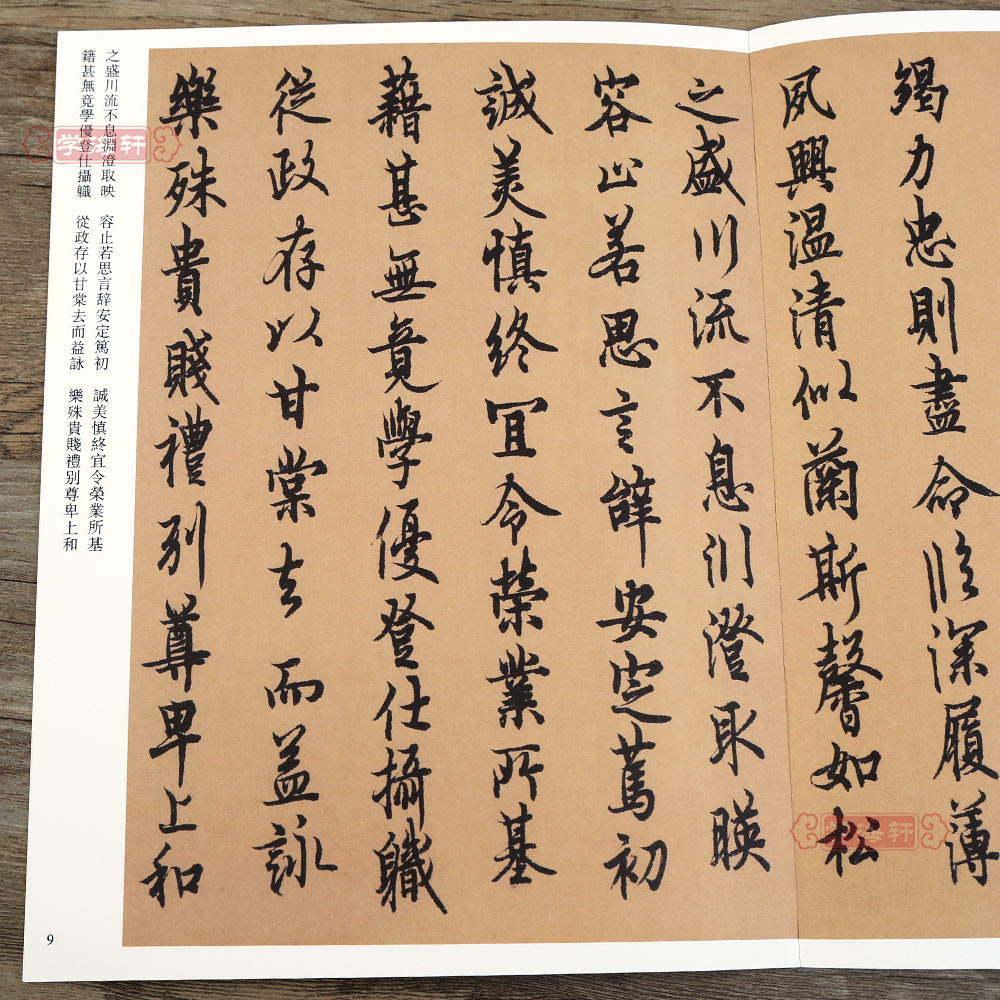 竭力忠則盡命臨深履薄
夙興温凊似蘭斯馨如松
之盛川流不息渊澄取暎
容止若思言辭安定篤初
誠美慎終宜令榮業所基
藉甚無竟學優登仕攝職
從政存以甘棠去而益詠
樂殊貴賤禮别尊卑上和
之盛川流不息淵澄取映
容止若思言辞安定篤初
誠美慎終宜令榮業所基
籍甚無竟學優登仕攝職
從政存以甘棠去而益詠
樂殊貴賤禮别尊卑上和
9
学海轩
学海轩